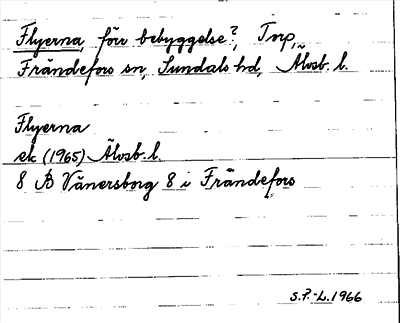 Flyerna, förr bebyggelse?, Tnp,
Frändefors sn, Sundals hd, Älvsb. l.
Flyerna
ek (1965) Älvsb. l.
8 B Vänersborg 8 i Frändefors
S.P.-L. 1966